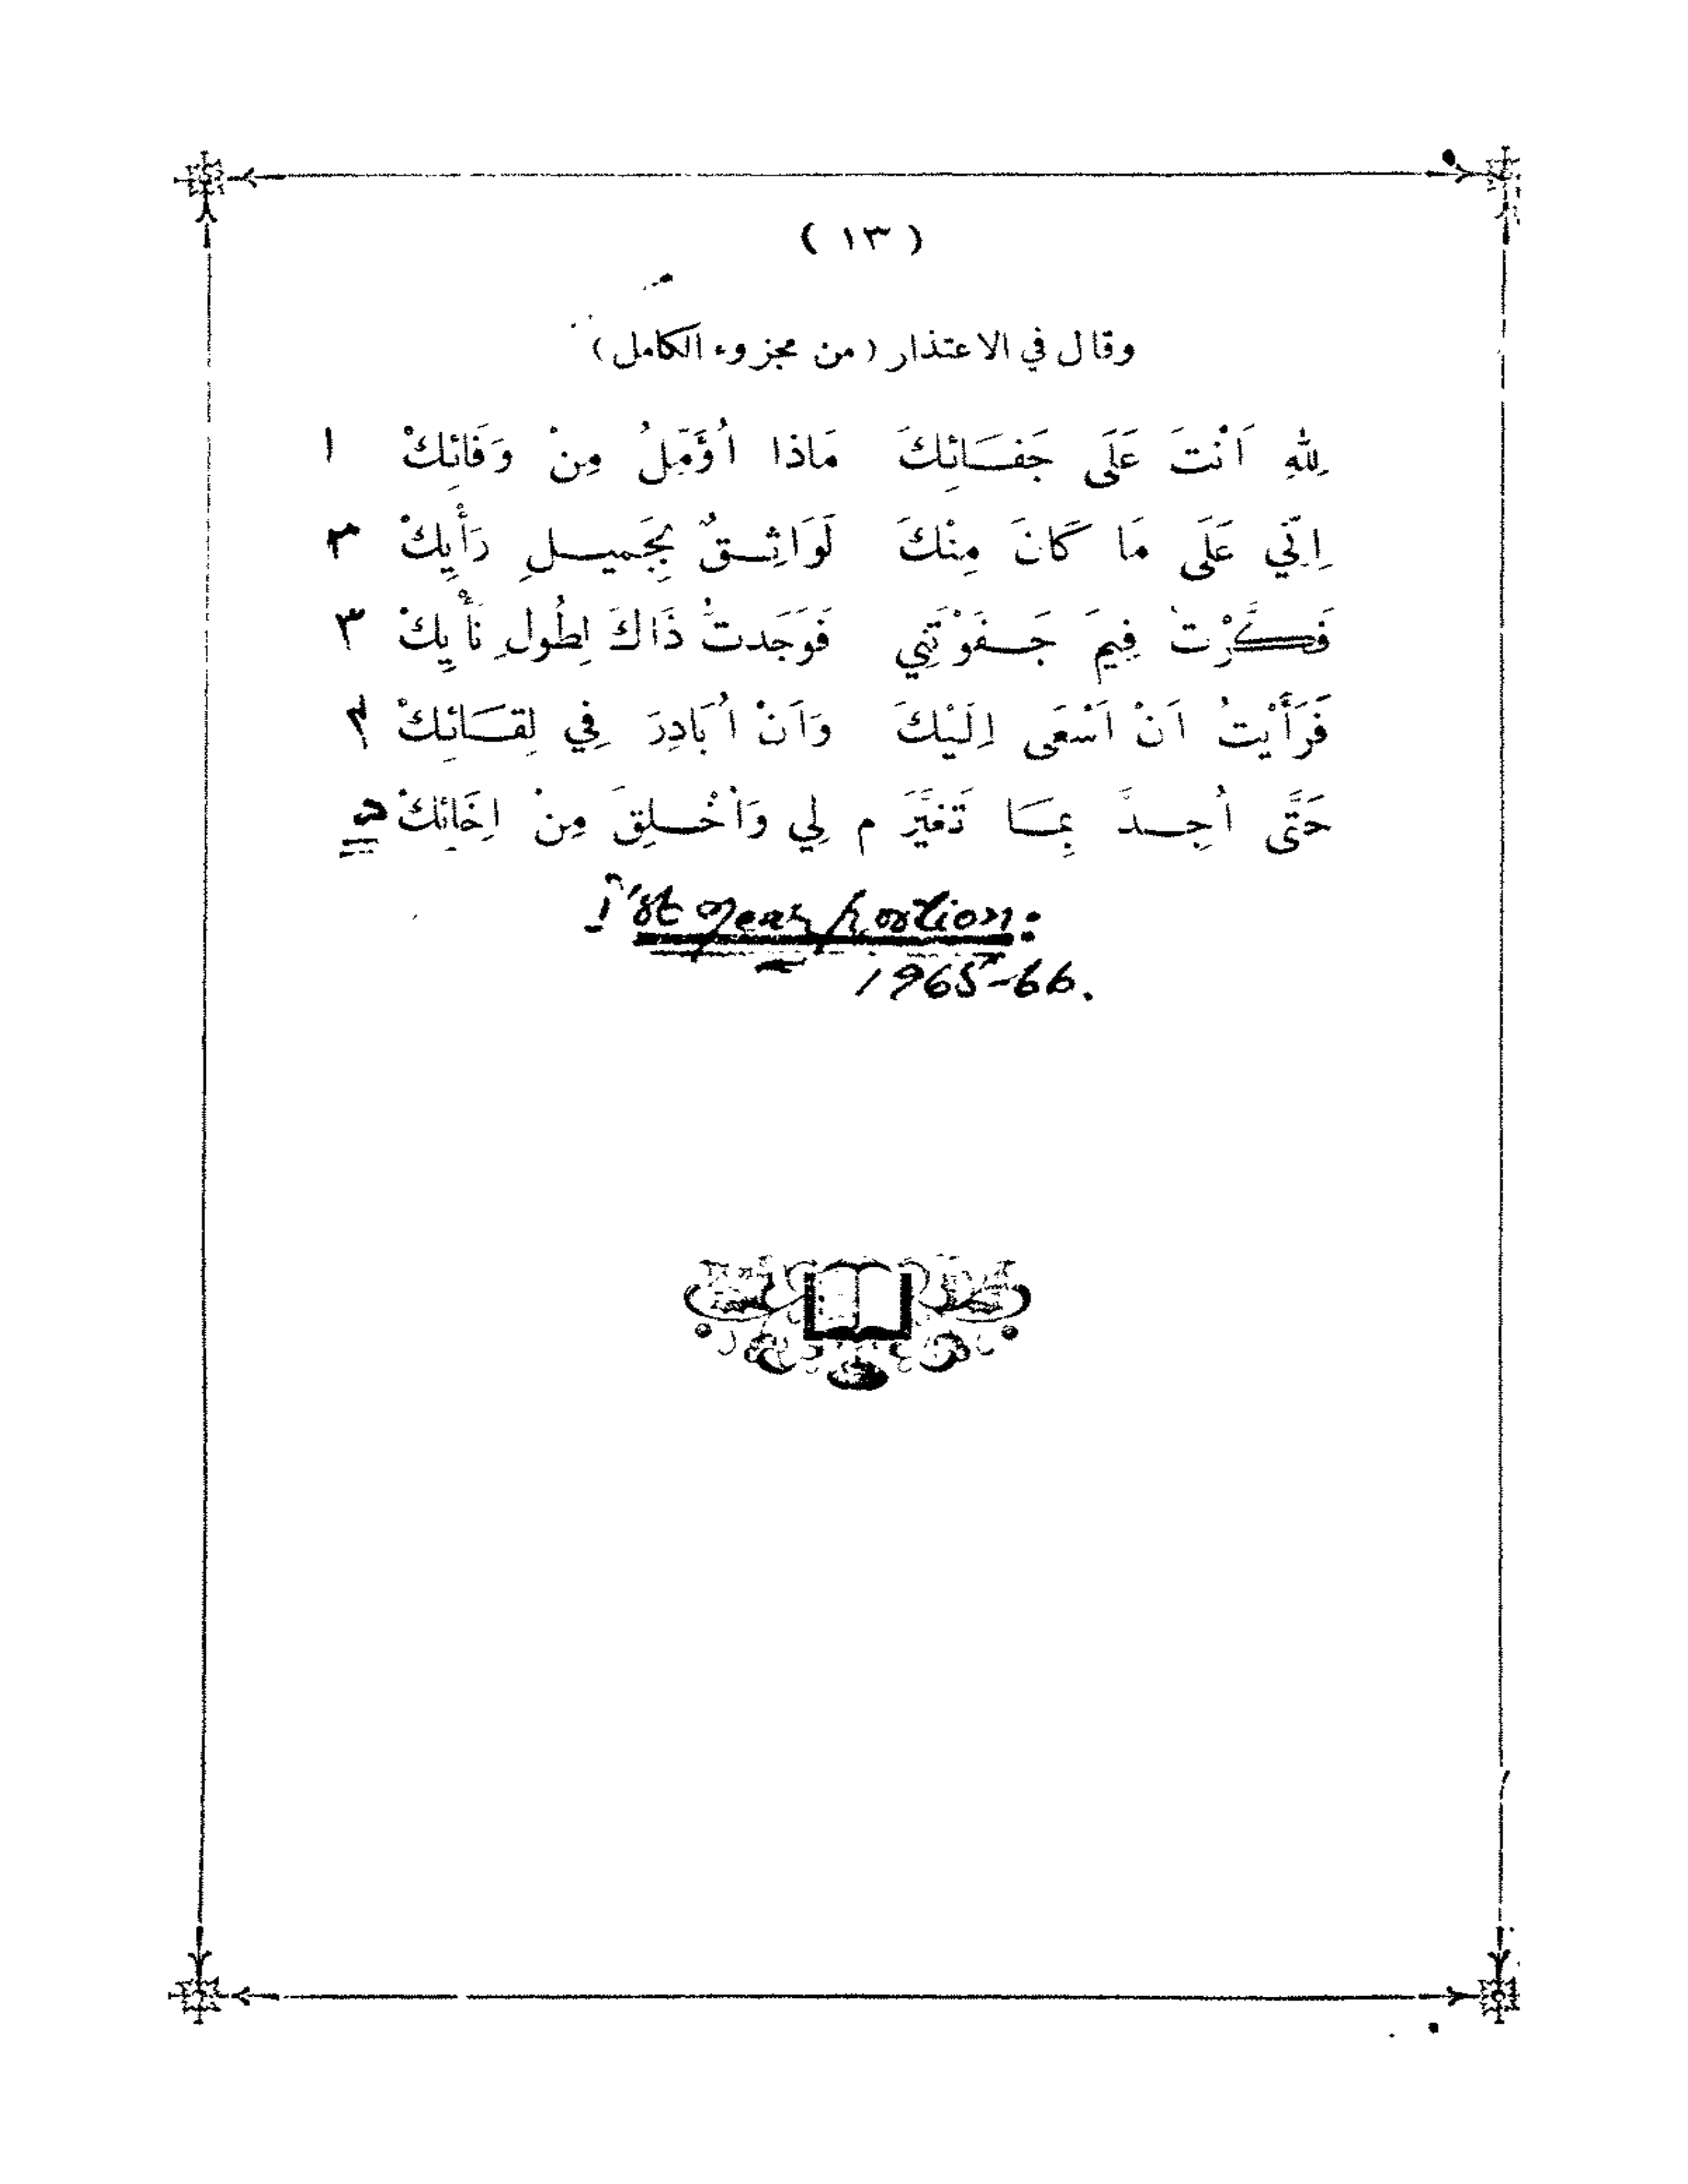 ( ١٣ )
وقال في الاعتذار (من مجزوء الكامل)
لِلّٰهِ اَنْتَ عَلَى جَفَائِكَ مَاذَا اُؤَمِّلُ مِنْ وَفَائِكْ ١
اِنِّي عَلَى مَا كَانَ مِنْكَ لَوَاثِقٌ بِجَمِيلِ رَأْيِكْ ٢
فَكَّرْتُ فِيمَ جَفَوْتَنِي فَوَجَدتُّ ذَاكَ لِطُولِ نَأْيِكْ ٣
فَرَأَيْتُ اَنْ اَسْعَى اِلَيْكَ وَاَنْ اُبَادِرَ فِي لِقَائِكْ ٤
حَتَّى اُجِدَّ بِمَا تَغَيَّرَ م لِي وَأَخْلِقَ مِنْ اِخَائِكْ ٥
I'st year portion:
1965-66.